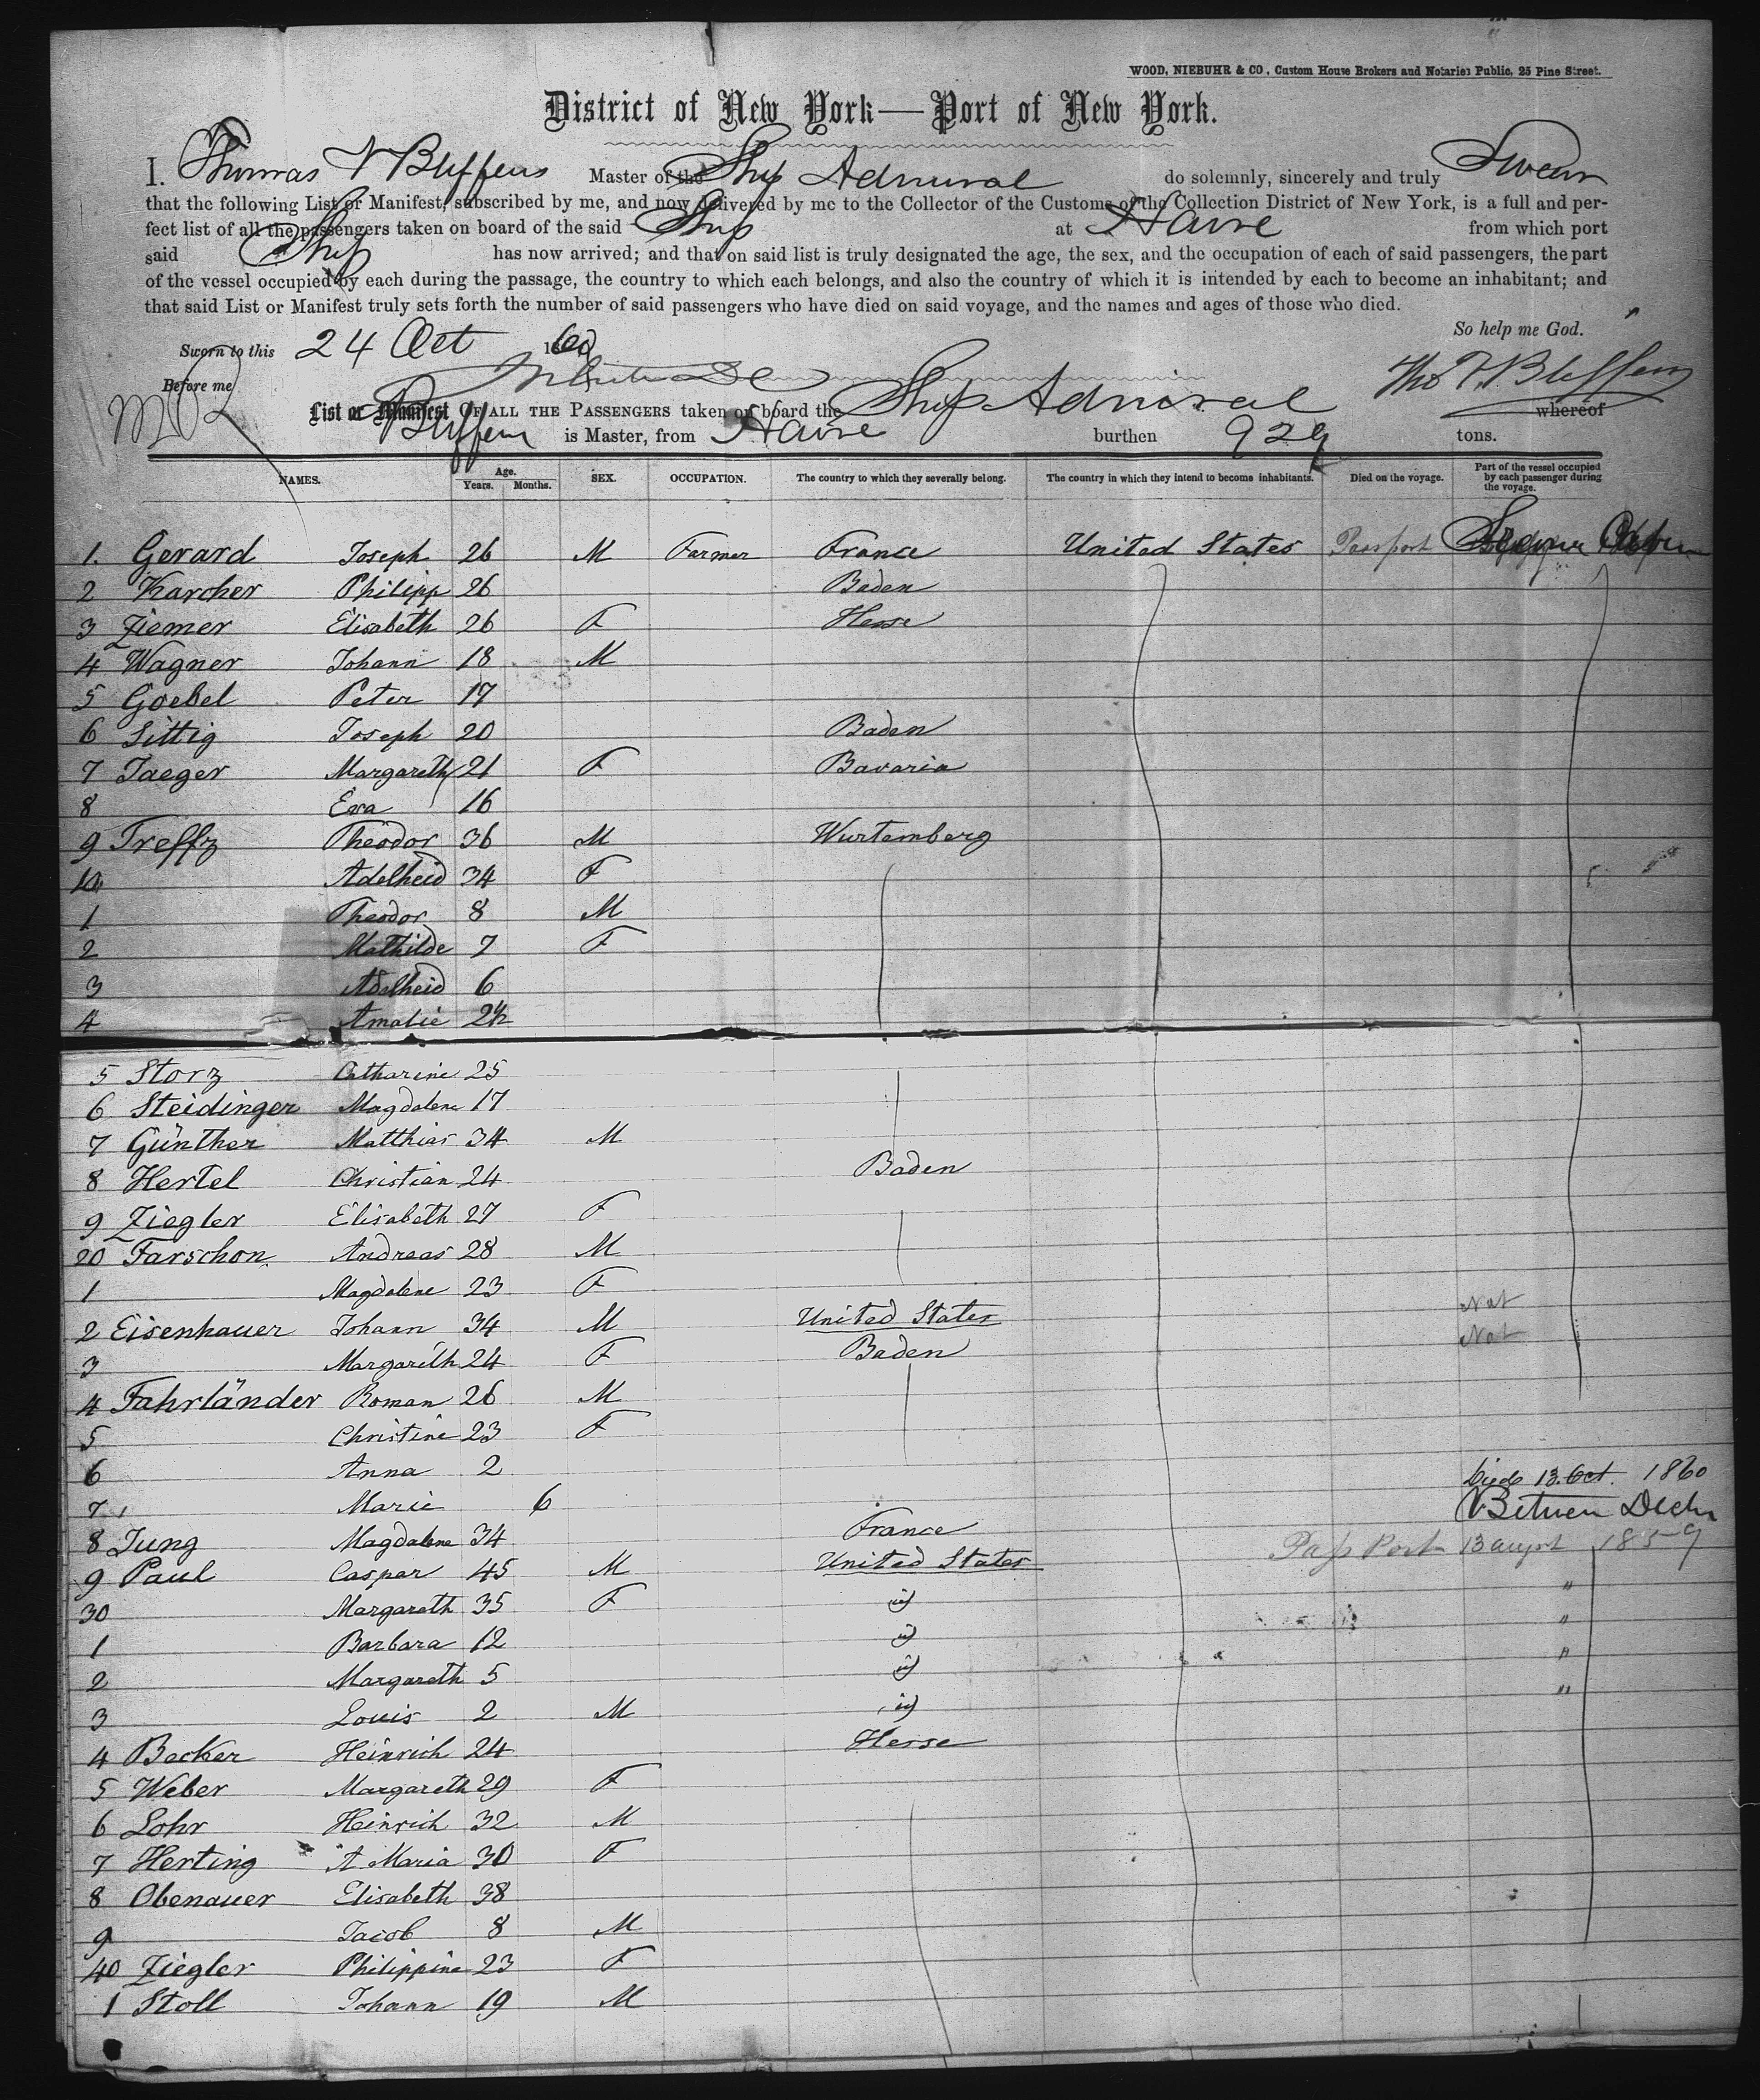 WOOD, NIEBUHR & CO, Custom House Brokers and Notaries Public, 25 Pine Street.
District of New York—Port of New York.
I. Thomas N Bleffens Master of the Ship Admiral do solemnly, sincerely and truly Swear
that the following List or Manifest, subscribed by me, and now delivered by me to the Collector of the Customs of the Collection District of New York, is a full and per-
fect list of all the passengers taken on board of the said Ship at Havre from which port
said Ship has now arrived; and that on said list is truly designated the age, the sex, and the occupation of each of said passengers, the part
of the vessel occupied by each during the passage, the country to which each belongs, and also the country of which it is intended by each to become an inhabitant; and
that said List or Manifest truly sets forth the number of said passengers who have died on said voyage, and the names and ages of those who died.
So help me God.
Sworn to this 24 Oct 1860
Before me
List or Manifest OF ALL THE PASSENGERS taken on board the Ship Admiral whereof
Bleffens is Master, from Havre burthen 929 tons.
NAMES. Age. Years. Months. SEX. OCCUPATION. The country to which they severally belong. The country in which they intend to become inhabitants. Died on the voyage. Part of the vessel occupied by each passenger during the voyage.
1. Gerard Joseph 26 M Farmer France United States Passport
2 Karcher Philipp 26 Baden
3 Ziemer Elisabeth 26 F Hesse
4 Wagner Johann 18 M
5 Goebel Peter 17
6 Sittig Joseph 20 Baden
7 Jaeger Margareth 21 F Bavaria
8 Eva 16
9 Treffz Theodor 36 M Wurtemberg
10 Adelheid 34 F
1 Theodor 8 M
2 Mathilde 7 F
3 Adelheid 6
4 Amalie 2½
5 Storz Catharine 25
6 Steidinger Magdalene 17
7 Günther Matthias 34 M
8 Hertel Christian 24 Baden
9 Ziegler Elisabeth 27 F
20 Farschon Andreas 28 M
1 Magdalene 23 F
2 Eisenhauer Johann 34 M United States Nat
3 Margarith 24 F Baden Nat
4 Fahrländer Roman 26 M
5 Christine 23 F
6 Anna 2
7 Marie 6 Died 13. Oct. 1860
8 Jung Magdalene 34 France Between Decks
9 Paul Caspar 45 M United States Pass Port 13 august 1859
30 Margareth 35 F id "
1 Barbara 12 id "
2 Margareth 5 id "
3 Louis 2 M id "
4 Becker Heinrich 24 Hesse
5 Weber Margareth 29 F
6 Lohr Heinrich 32 M
7 Herting A Maria 30 F
8 Obenauer Elisabeth 38
9 Jacob 8 M
40 Ziegler Philippine 23 F
1 Stoll Johann 19 M